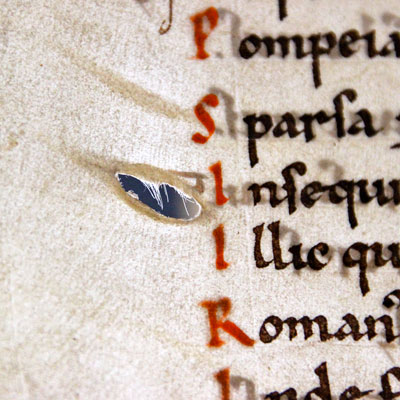 Pompeia
Sparsa
Insequi
Illic qu
Roman
Inde f